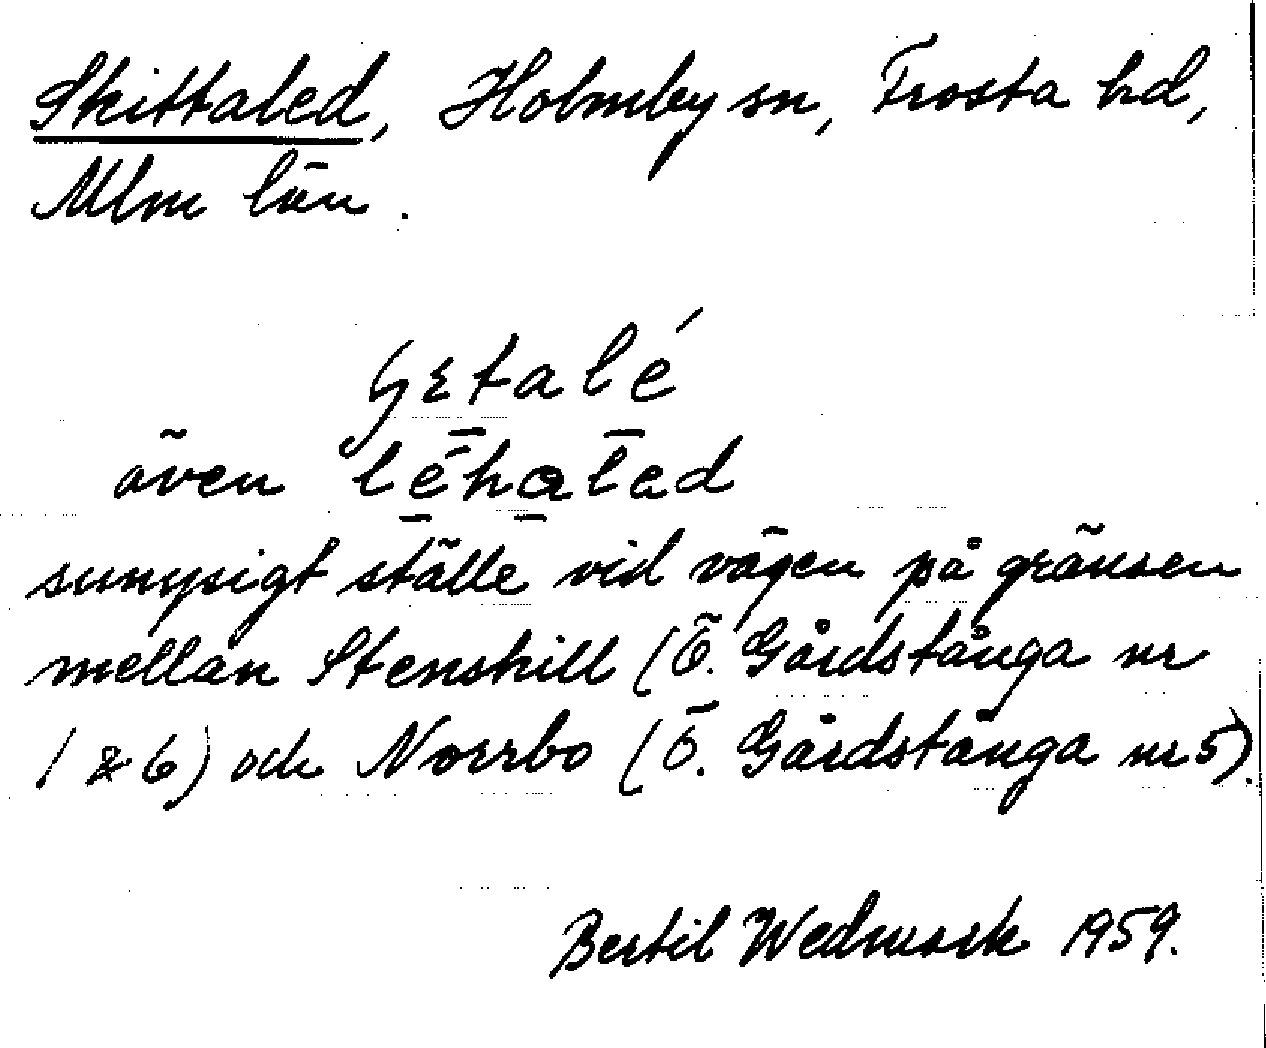 Skittaled, Holmby sn, Frosta hd,
Mlm län.
även
sumpigt ställe vid vägen på gränsen
mellan Stenskill (Ö. Gårdstånga nr
1 & 6) och Norrbo (Ö. Gårdstånga nr 5).
Bertil Wedmark 1959.